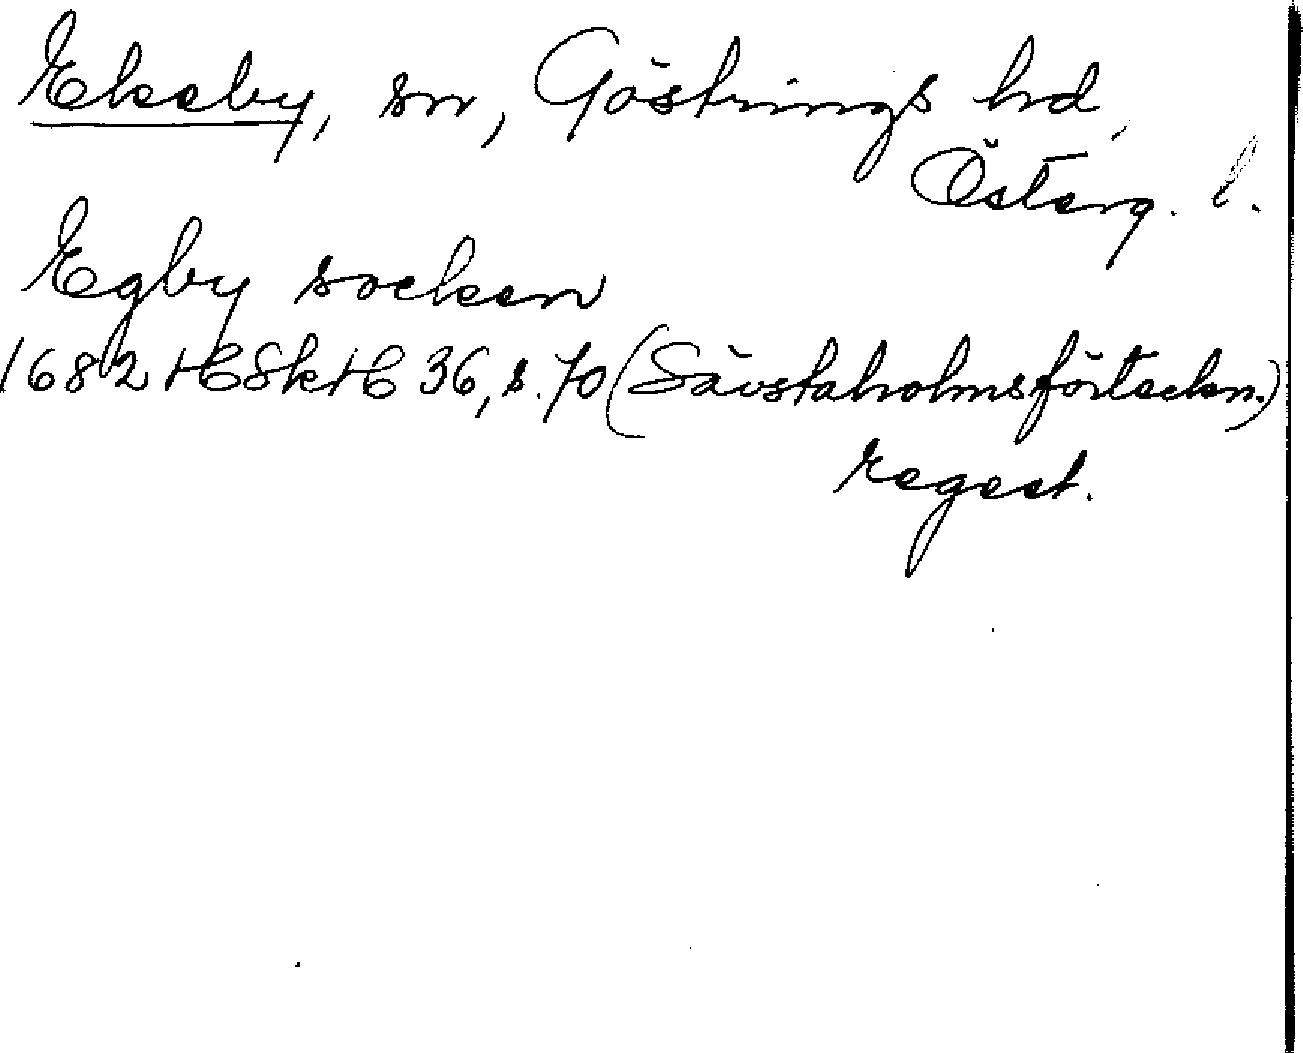 Ekeby, sn, Göstrings hd,
Österg. l.
Egby socken
1682 HSkH 36, s. 70 (Sävstaholmsförteckn.)
regest.